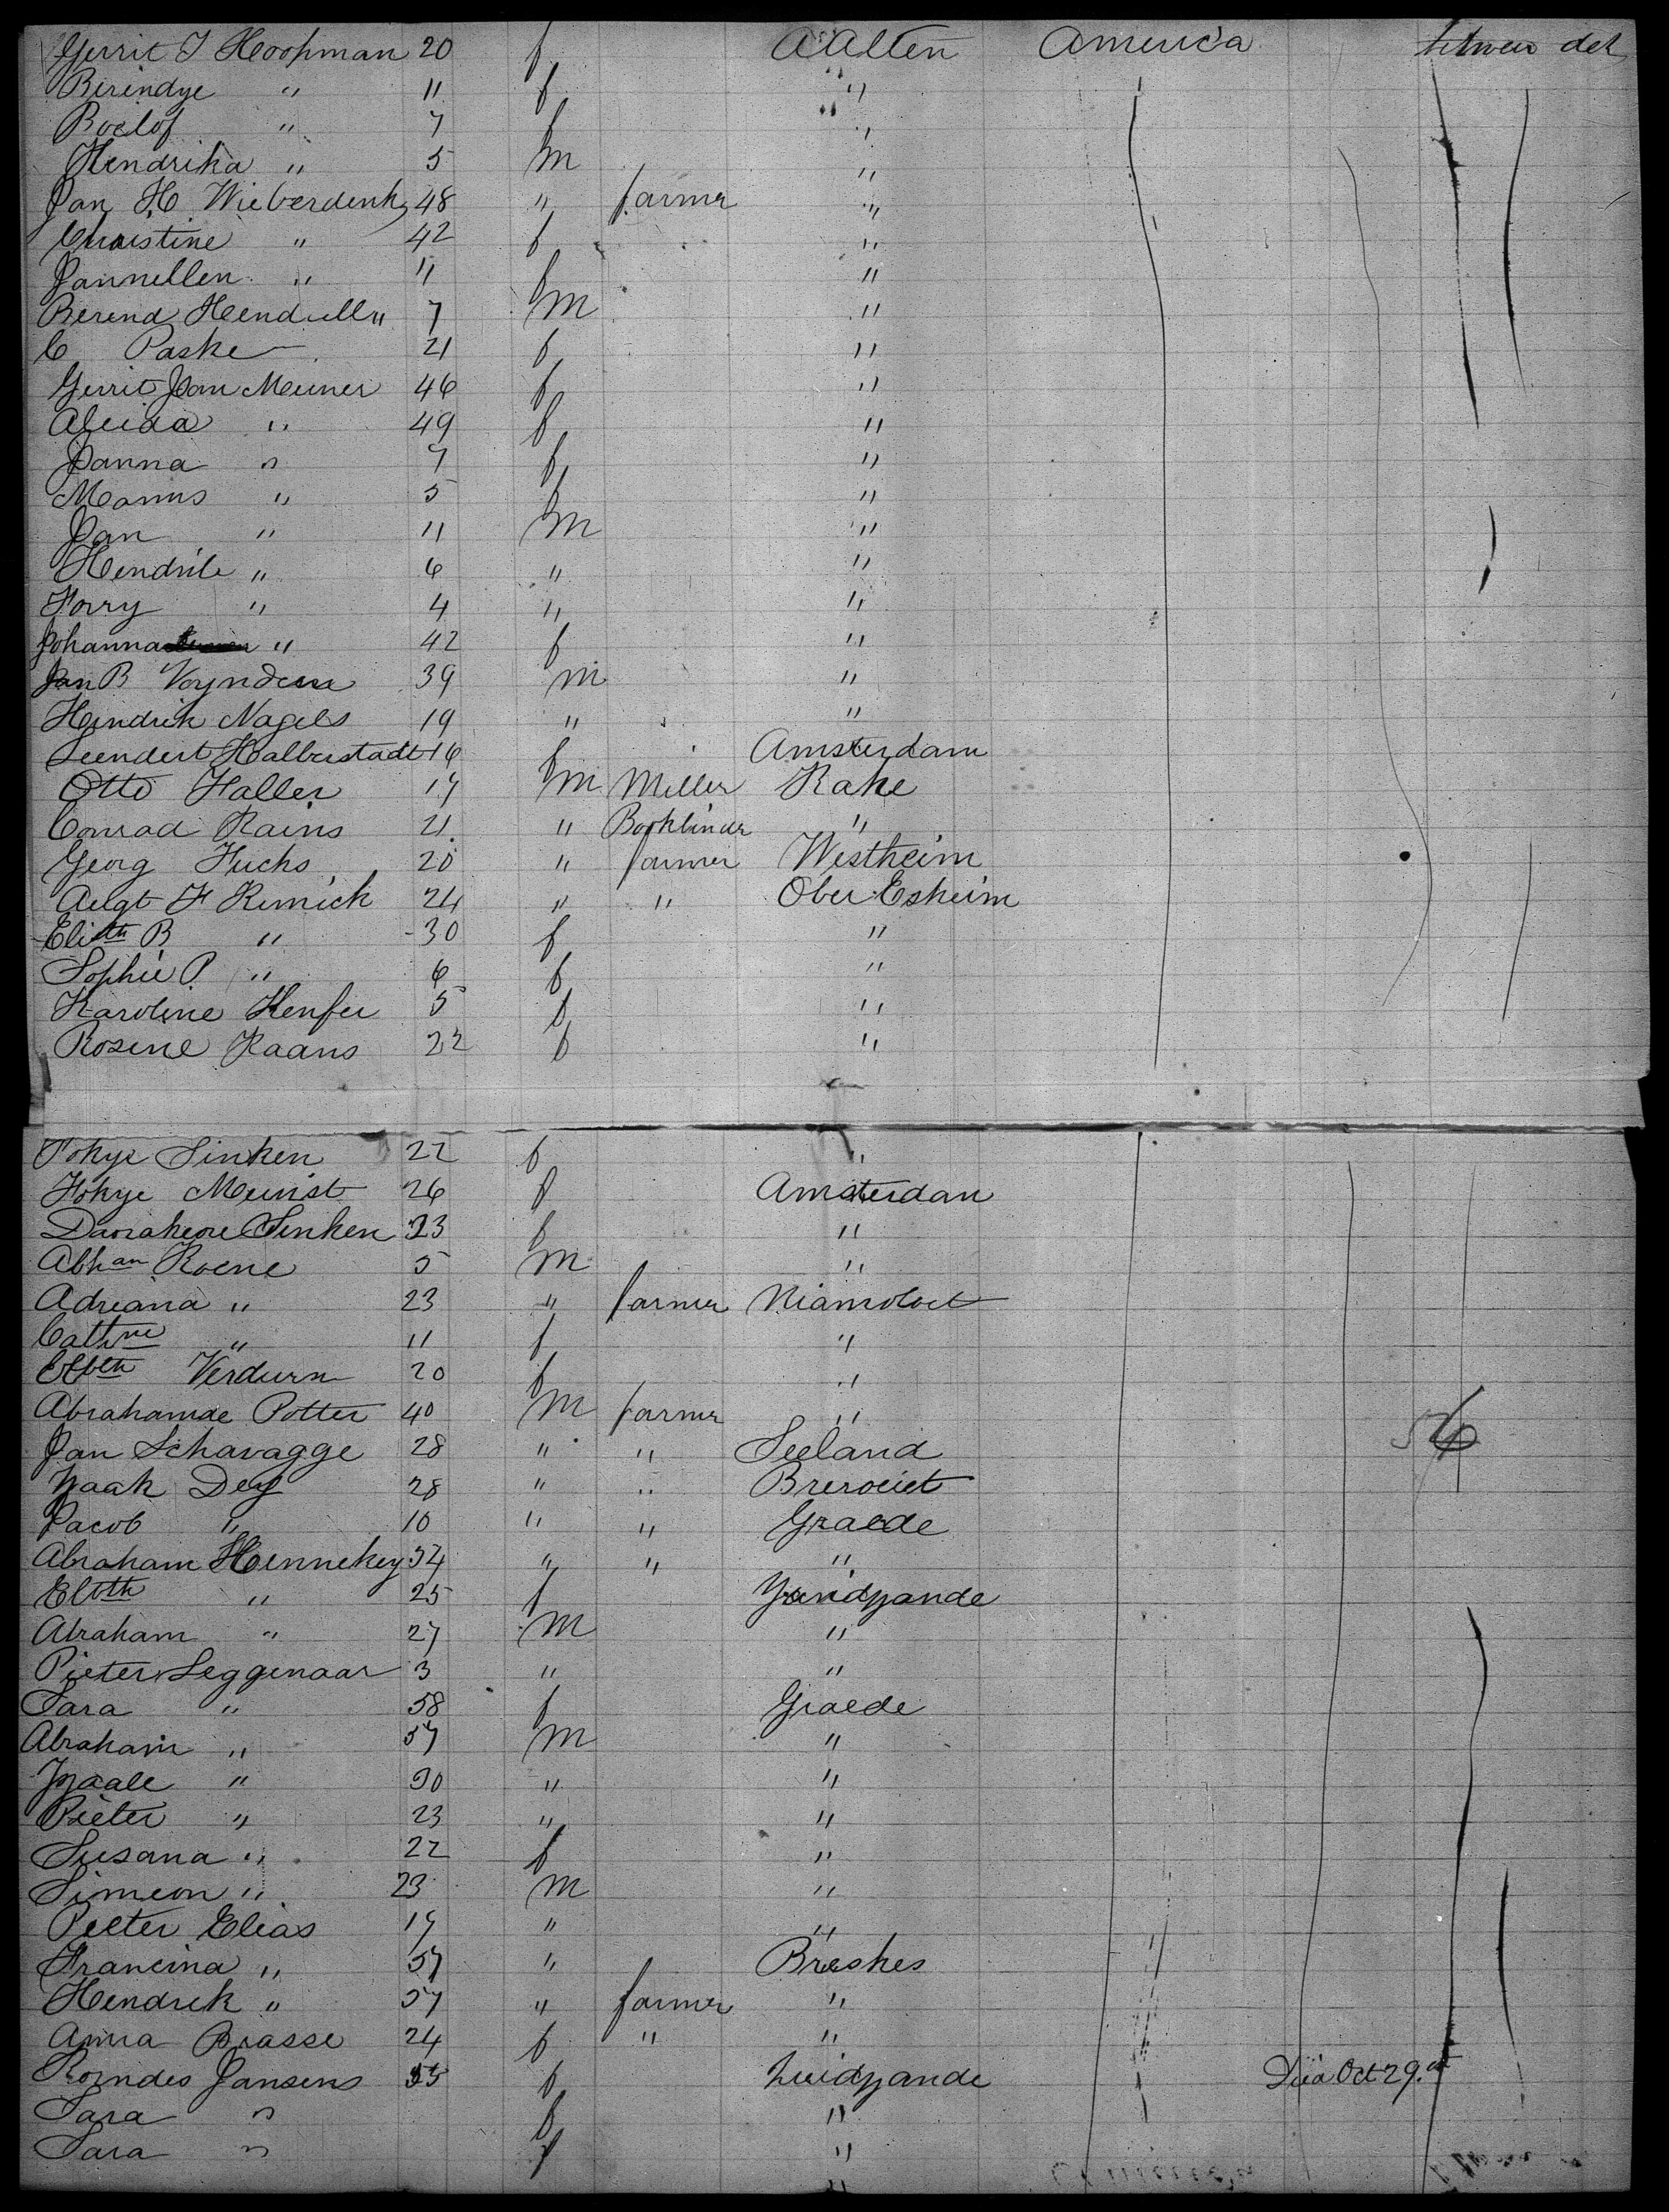 Gerrit J Hoopman 20 f AAlten America
Berendye " 11 f "
Roelof " 7 f "
Hendrika " 5 m "
Jan H. Wieberdenk 48 " farmer "
Christine " 42 f "
Jannellen " 11 f "
Berend Hendull " 7 m "
C Paske 21 f "
Gerrit Jan Meiner 46 f "
Aleida " 49 f "
Janna " 7 f "
Manus " 5 "
Jan " 11 m "
Hendrik " 6 " "
Forry " 4 " "
Johanna " 42 f "
Jan B 39 m "
Hendrik Nagels 19 " "
Leendert Halberstadt 16 f Amsterdam
Otto Haller 17 m Miller Rake
Conrad Rains 21 " Bookbinder "
Georg Fuchs 20 " farmer Westheim
Aegt F Remick 24 " " Ober Esheim
Elisth B " 30 f "
Sophie P " 6 f "
Karoline Kenfer 5 f "
Rosine Kaans 22 f "
Tokye Sinken 22 f "
Fokye Meinst 26 f Amsterdan
Sinken 23 f "
Abhan Roene 5 m "
Adreana " 23 " farmer
Cathne " 11 f "
Elbth Verdurn 20 f "
Abrahamde Potter 40 m farmer "
Jan Schavagge 28 " " Seeland 56
Izaak Dey 28 " "
Jacob " 10 " " Graede
Abraham Hennekey 54 " " "
Elbth " 25 f
Abraham " 27 m "
Pieter Leggenaar 3 " "
Sara " 58 f Graede
Abraham " 57 m "
Izaale " 30 " "
Pieter " 23 " "
Susana " 22 f "
Simeon " 23 m "
Peeter Elias 17 " "
Francina " 57 " Breskes
Hendrik " 57 " farmer "
Anna Brasse 24 f " "
Rozndes Jansens 35 f Zuidzande Died Oct 29.
Sara " f "
Sara " f "